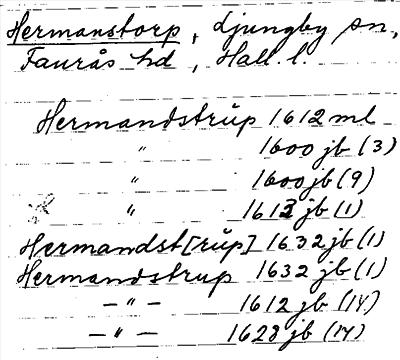 Hermanstorp, Ljungby sn,
Faurås hd, Hall. l.
Hermandstrŭp 1612 ml
" 1600 jb (3)
" 1600 jb (9)
" 1613 jb (1)
Hermandst[rŭp] 1632 jb (1)
Hermandstrup 1632 jb (1)
– " – 1612 jb (14)
– " – 1628 jb (14)